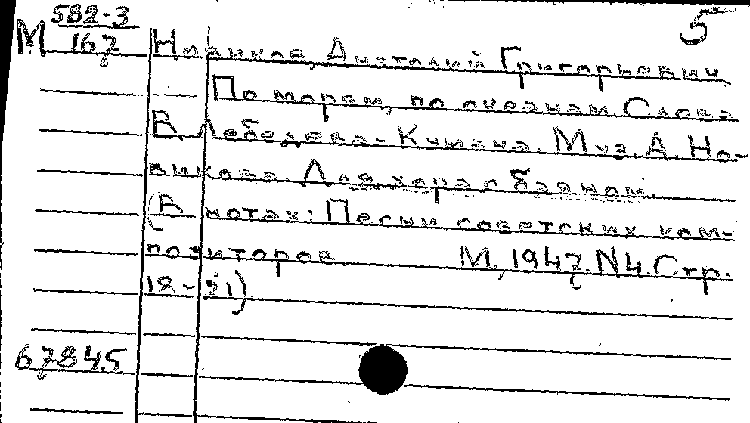 582-3
5
М 167
Новиков, Анатолий Григорьевич
По морям, по океанам. Слова
В. Лебедева-Кумача. Муз. А. Но-
викова. Для хора с баяном.
(В нотах: Песни советских ком-
позиторов. М., 1947. N4. Стр.
18-21)
67845